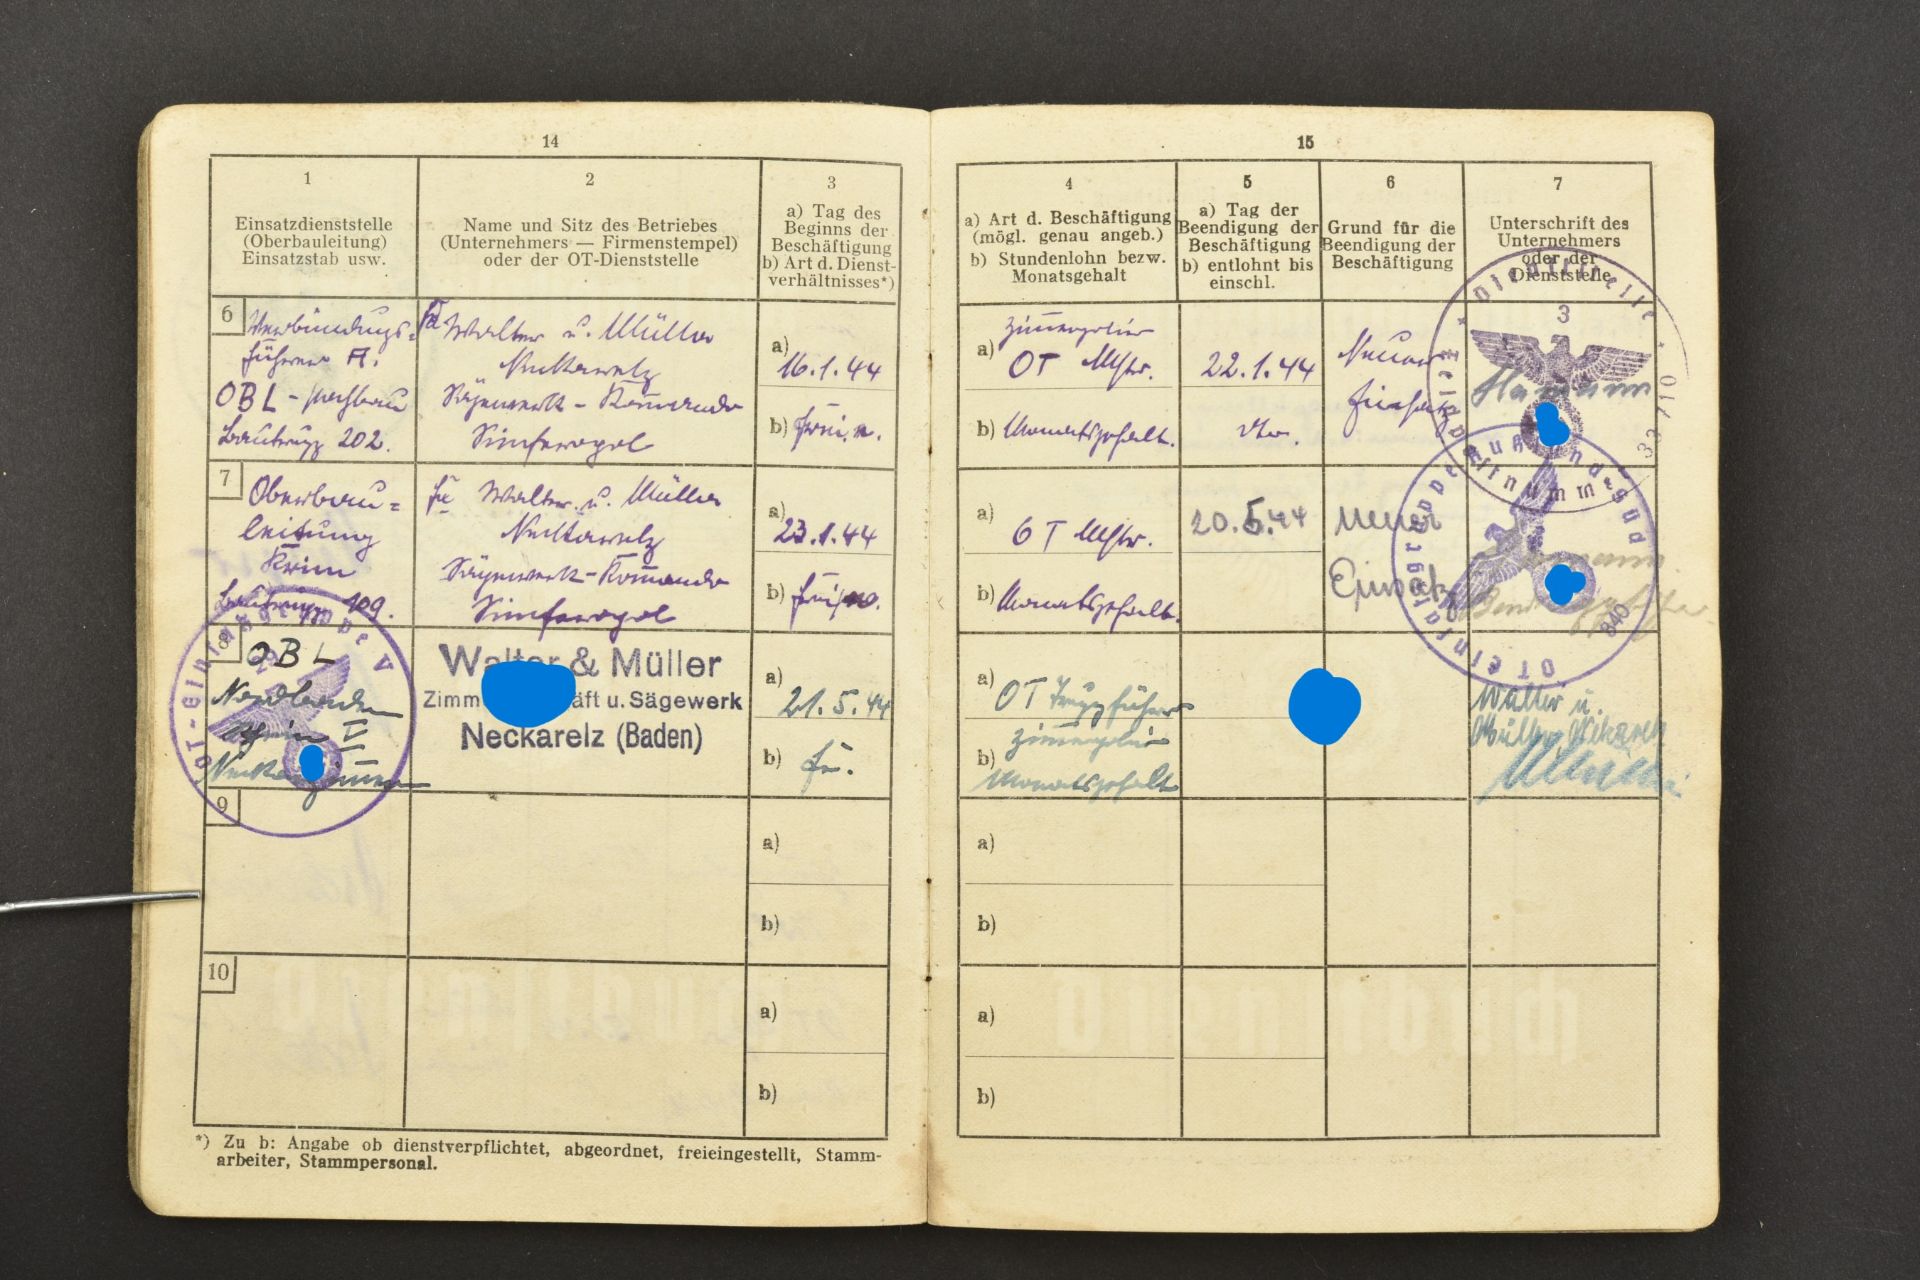 14
1
Einsatzdienststelle
(Oberbauleitung)
Einsatzstab usw.
2
Name und Sitz des Betriebes
(Unternehmers — Firmenstempel)
oder der OT-Dienststelle
3
a) Tag des
Beginns der
Beschäftigung
b) Art d. Dienst-
verhältnisses*)
6
Verbindungs=
führer A.
OBL -
Bautrupp 202.
Fa Walter u. Müller
Neckarelz
Sägewerk - Komando
Simferopol
a)
16.1.44
b)
7
Oberbau=
leitung
Krim
Bautrupp 109.
Fa Walter u. Müller
Neckarelz
Sägewerk - Komando
Simferopol
a)
23.1.44
b)
8
OBL
OT-Einsatzgruppe V
Walter & Müller
Zimm äft u. Sägewerk
Neckarelz (Baden)
a)
21.5.44
b)
9
a)
b)
10
a)
b)
*) Zu b: Angabe ob dienstverpflichtet, abgeordnet, freieingestellt, Stamm-
arbeiter, Stammpersonal.
15
4
a) Art d. Beschäftigung
(mögl. genau angeb.)
b) Stundenlohn bezw.
Monatsgehalt
5
a) Tag der
Beendigung der
Beschäftigung
b) entlohnt bis
einschl.
6
Grund für die
Beendigung der
Beschäftigung
7
Unterschrift des
Unternehmers
oder der
Dienststelle
Dienststelle
Feldpostnummer
3
33/10
a)
Zimmerpolier
OT Mstr.
b) Monatsgehalt.
22.1.44
dto.
Neuer
Einsatz
a)
OT Mstr.
b) Monatsgehalt.
20.5.44
Neuer
Einsatz
OT Einsatzgruppe
840
a)
OT Truppführer
Zimmerpolier
b)
Monatsgehalt
Walter u.
Müller, Neckarelz
a)
b)
a)
b)
Dienstbuch